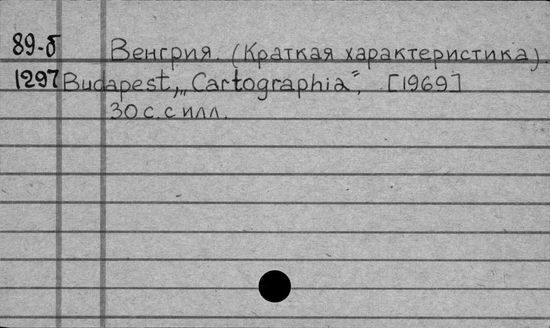 89-б Венгрия. (Краткая характеристика).
1297 Budapest, „Cartographia", [1969]
30 с. с илл.